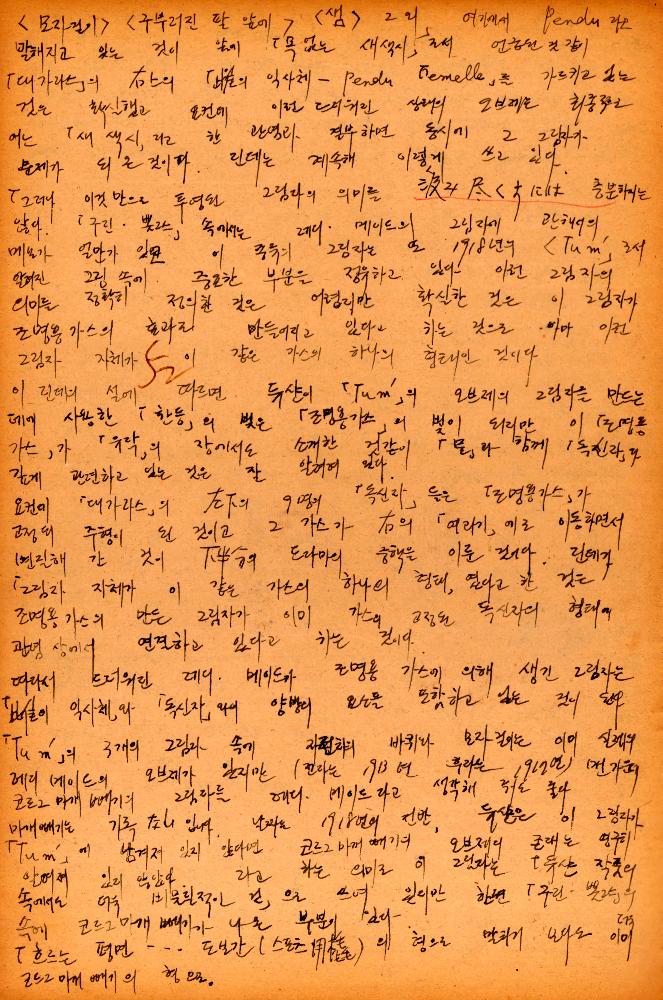 <모자걸이> <구부러진 팔 앞에> <샘> 그외, 여기에서 Pendu 라고
말해지고 있는 것이 앞에 「목없는 새색시」로서 언급된 것 같이
「대가라스」의 右上의 「 의 익사체 - Pendu Femelle」를 가르키고 있는
것은 확실했고 요컨데 이런 드리워진 상태의 오브제는 최종적으로
어느 「새 색시」라고 한 관념과 결부하면 동시에 그 그림자가
문제가 되 온 것이다. 린데는 계속해 이렇게 쓰고 있다.
「그러나 이것 만으로 투영된 그림자의 의미를 충분하지는
않다. 「구린·뽓크스」 속에서는 레디·메이드의 그림자에 관해서의
메모가 얼만가 있 이 종류의 그림자는 또 1918년의 <Tu m'>로서
알려진 그림 속에 중요한 부분을 점유하고 있다- 이런 그림자의
의미를 정확히 정의한 것은 어렵지만 확실한 것은 이 그림자가
조명용 가스의 효과로 만들어지고 있다고 하는 것으로 아마 이런
그림자 자체가 이 같은 가스의 하나의 형태인 것이다
이 린데의 설에 따르면 듀샹이 「Tu m'」의 오브제의 그림자를 만드는
데에 사용한 「환등」의 빛은 「조명용가스」의 빛이 되리만 이 「조명용
가스」가 「유작」의 장에서도 소개한 것같이 「물」과 함께 「독신자」와
깊게 관련하고 있는 것은 잘 알려져 있다.
요컨데 「대가라스」의 左下의 9명의 「독신자」들은 「조명용가스」가
교정되 주형이 된 것이고 그 가스가 右의 「여라기」에로 이동하면서
변질해 간 것이 下半分의 드라마의 중핵을 이룬 것이다. 린데가
「그림자 자체가 이 같은 가스의 하나의 형태」였다고 한 것은
조명용 가스의 만든 그림자가 이미 가스의 교정된 독신자의 형태에
관념 상에서 연결하고 있다고 하는 것이다.
따라서 드리워진 레디·메이드가 조명용 가스에 의해 생긴 그림자는
의 익사체」와 「독신자」와의 양방의 요소를 포함하고 있는 것이 된다
「Tu m'」의 3개의 그림자 속에 자전차의 바퀴와 모자걸이는 이미 실재의
레디 메이드의 오브제가 있지만 (전자는 1913년 후자는 1917년) 나머지
코르크 마개 빼기의 그림자를 레디·메이드라고 생각해 좋다
마개빼기는 기록 입네. 날짜는 1918년의 전반, 듀샹은 이 그림자가
「Tu m'」에 남겨져 있지 않다면 코르크 마개 빼기의 오브제의 존재는 영구히
알려져 있지 않았다 라고 하는 의미로 이 그림자는 「듀샹 작품의
속에서도 더욱 비물질적인 것」으로 쓰여 있지만 한편 「구린·뽓크스」의
속에 코르크마개 빼기가 나온 부분이 있다-
「흐르는 평면 --- 도보간 (스포츠用品) 의 형으로 말하기 보다는 더욱 이미
코르크 마개 빼기의 형 으로.